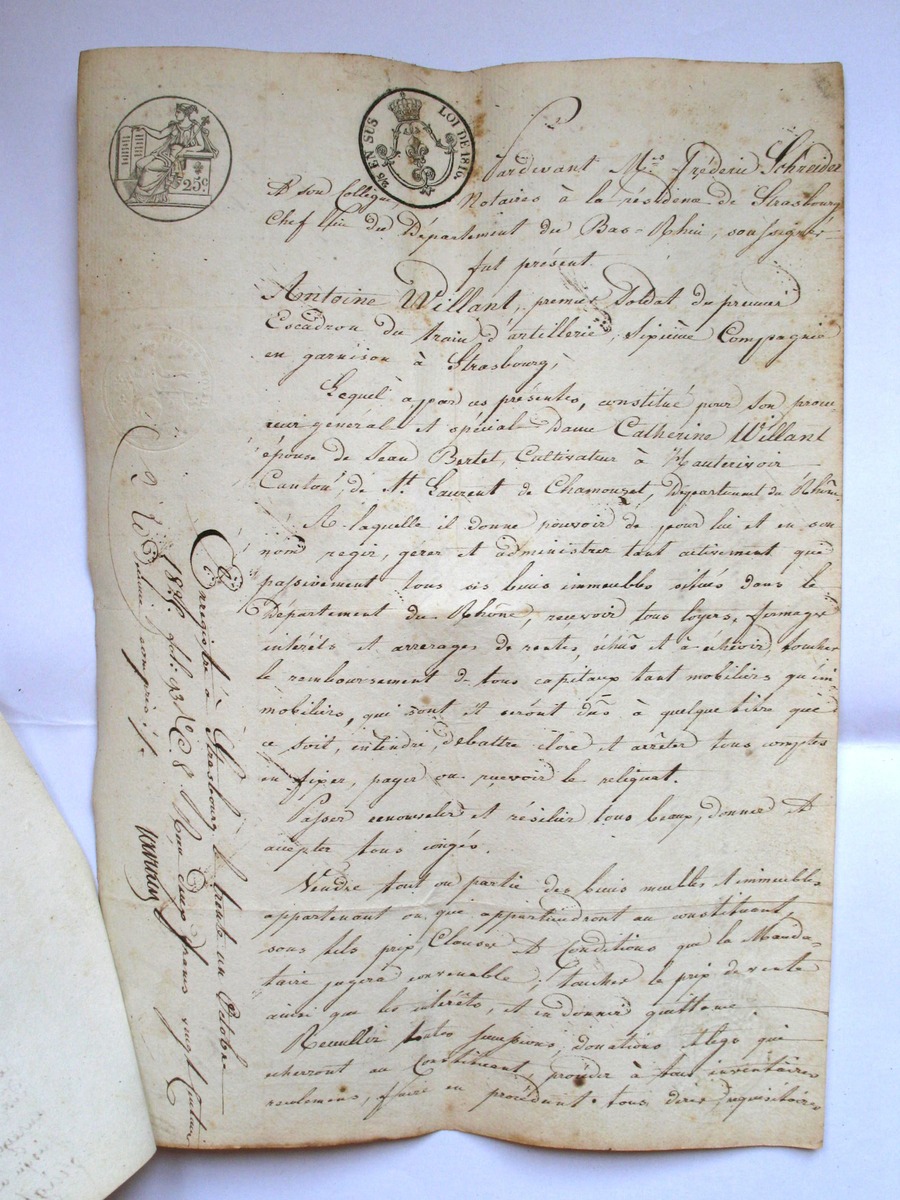 25 EN SUS LOI DE 1816
25c.
Pardevant Me. Fréderic Schreider
& son Collègue Notaires à la résidence de Strasbourg
Chef lieu du Département du Bas-Rhin, soussignés
fut présent
Antoine Willant, premier soldat du premier
Escadron du train d'artillerie, sixième Compagnie
en garnison à Strasbourg,
Lequel a par ces présentes, constitué pour son procu-
reur général et spécial Dame Catherine Willant
épouse de Jean Bertet, Cultivateur à Hauterivoir
Canton de St. Laurent de Chamouset, Département du Rhône
A laquelle il donne pouvoir de pour lui et en son
nom regir, gerer et administrer tant activement que
passivement tous ses biens immeubles situés dans le
Département du Rhône, recevoir tous loyers, fermages
intérêts et arrerages de rentes, échus et à échevir, toucher
le remboursement de tous capitaux tant mobiliers qu'im-
mobiliers, qui sont et seront dûs à quelque titre que
ce soit, entendre, debattre clore et arrêter tous comptes
en fixer, payer ou recevoir le reliquat.
Passer renouveler et résilier tous beaux, donner et
accepter tous congés.
Vendre tout ou partie des biens meubles et immeubles
appartenant ou qui appartiendront au constituant,
sous tels prix, Clauses et Conditions que la Manda-
taire jugera convenable, toucher le prix de vente
ainsi que les intérêts, et en donner quittance.
Recueillir toutes successions, donations & legs qui
echerront au Constituant, procéder à tous inventaires
recolemens, faire en procédant tous dires, requisitoires
Enregistré à Strasbourg le trente un Octobre
18 fol. 93 Rcu deux francs vingt Centimes
Dixieme compris.